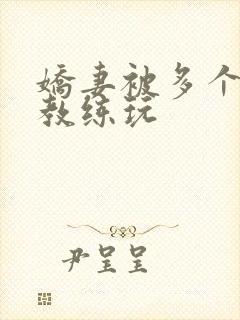 嬌妻被多个
教练玩
尹呈呈